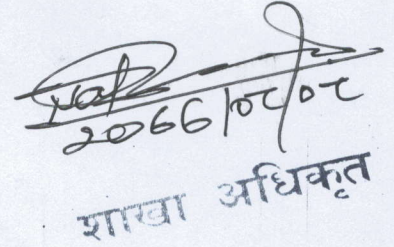 २०६६|०८|०८
शाखा अधिकृत